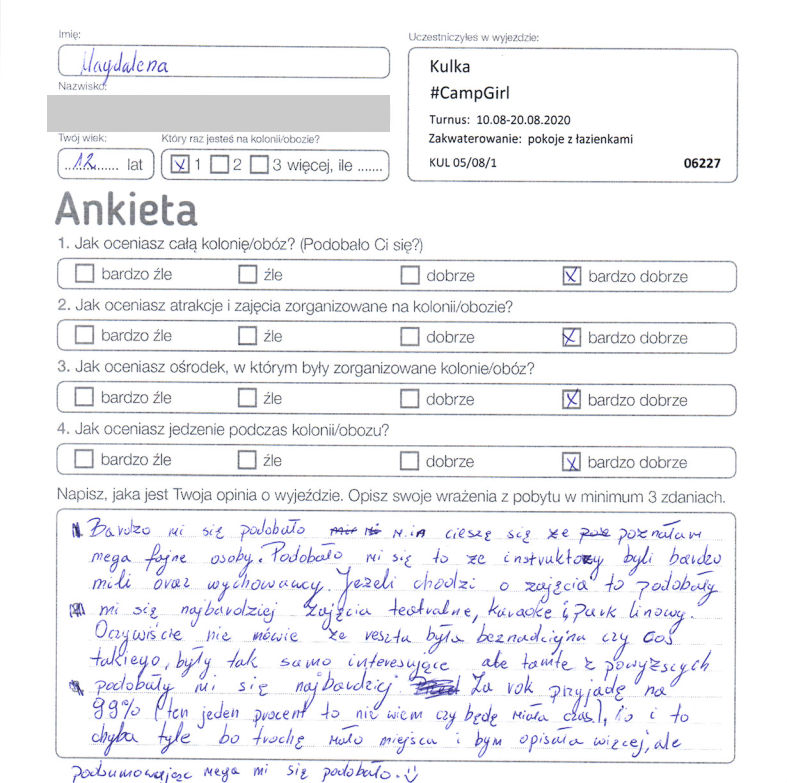 Imię:
Magdalena
Nazwisko:
Twój wiek:
12 lat
Który raz jesteś na kolonii/obozie?
1 2 3 więcej, ile .......
Uczestniczyłeś w wyjeździe:
Kulka
#CampGirl
Turnus: 10.08-20.08.2020
Zakwaterowanie: pokoje z łazienkami
KUL 05/08/1 06227
Ankieta
1. Jak oceniasz całą kolonię/obóz? (Podobało Ci się?)
bardzo źle źle dobrze bardzo dobrze
2. Jak oceniasz atrakcje i zajęcia zorganizowane na kolonii/obozie?
bardzo źle źle dobrze bardzo dobrze
3. Jak oceniasz ośrodek, w którym były zorganizowane kolonie/obóz?
bardzo źle źle dobrze bardzo dobrze
4. Jak oceniasz jedzenie podczas kolonii/obozu?
bardzo źle źle dobrze bardzo dobrze
Napisz, jaka jest Twoja opinia o wyjeździe. Opisz swoje wrażenia z pobytu w minimum 3 zdaniach.
Bardzo mi się podobało m.in cieszę się że poznałam
mega fajne osoby. Podobało mi się to ze instruktorzy byli bardzo
mili oraz wychowawcy. Jeżeli chodzi o zajęcia to podobały
mi się najbardziej zajęcia teatralne, karaoke i park linowy.
Oczywiście nie mówię że reszta była beznadziejna czy coś
takiego, były tak samo interesujące ale tamte z powyższych
podobały mi się najbardziej. Za rok przyjadę na
99% (ten jeden procent to nie wiem czy będę miała czas), i to
chyba tyle bo trochę mało miejsca i bym opisała więcej, ale
podsumowując mega mi się podobało. :)